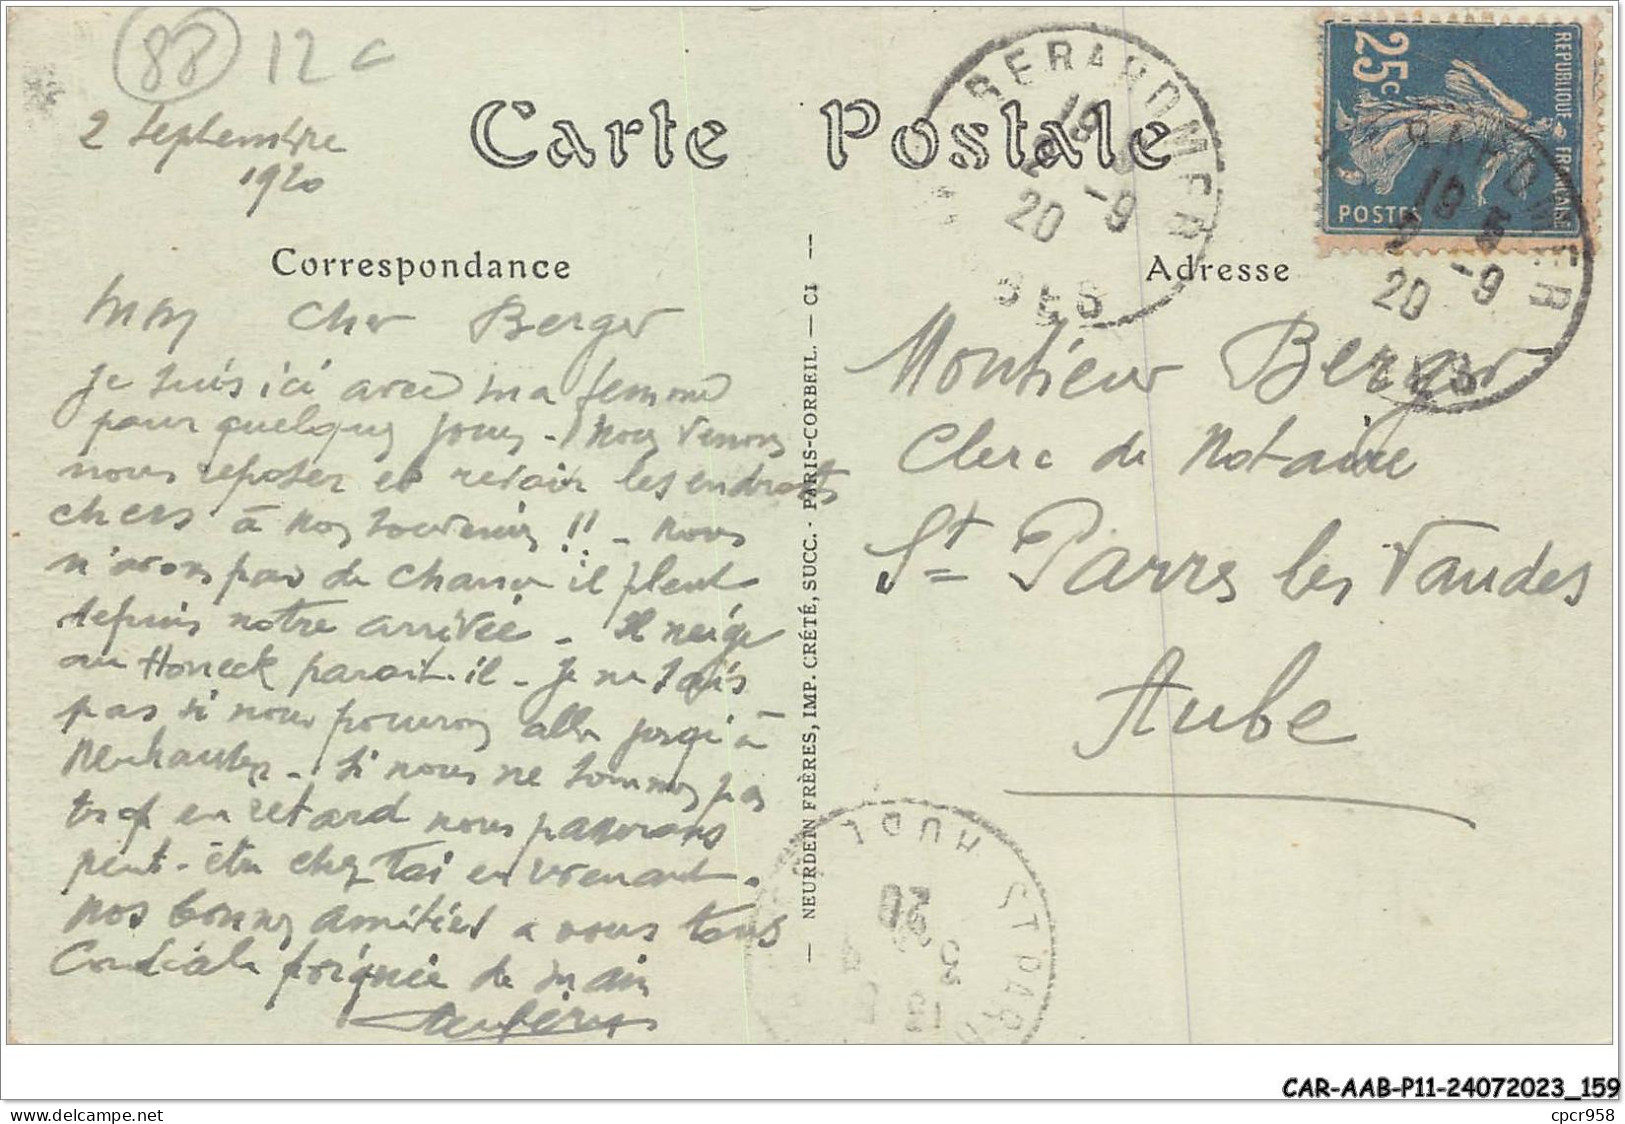 88 12 c
2 Septembre
1920
Carte Postale
GERARDMER
19
2 -9
20
VOSGES
REPUBLIQUE FRANÇAISE
25c
POSTES
GERARDMER
19 5
2 -9
20
VOSGES
Correspondance
Mon Cher Berger
Je suis ici avec ma femme
pour quelques jours - Nous venons
nous reposer et revoir les endroits
chers à nos souvenirs !! - Nous
n'avons pas de chance il pleut
depuis notre arrivée - Il neige
au Honeck parait-il - Je ne sais
pas si nous pourrons aller jusqu'à
- Si nous ne sommes pas
trop en retard nous passerons
peut-être chez Toi en
Nos bonnes amitiés a vous tous
Cordiale poignée de main
NEURDEIN FRÈRES, IMP. CRÉTÉ, SUCC. - PARIS-CORBEIL. - CI
Adresse
Monsieur Berger
Clerc de Notaire
St Parres les Vaudes
Aube
ST PAR
20
CAR-AAB-P11-24072023_159
www.delcampe.net
cpcr958